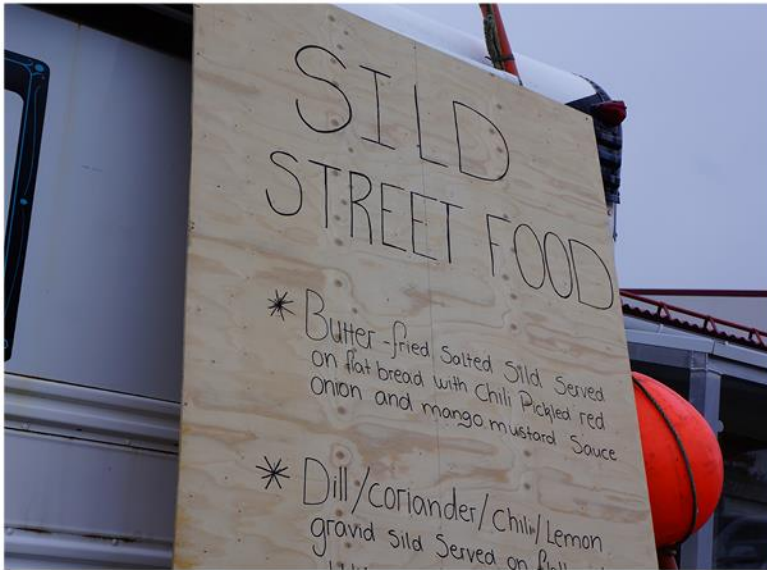 SILD
STREET FOOD
* Butter-fried Salted Sild Served
on flat bread with Chili Pickled red
onion and mango.mustard Sauce
* Dill/coriander/Chili/Lemon
gravid sild Served on